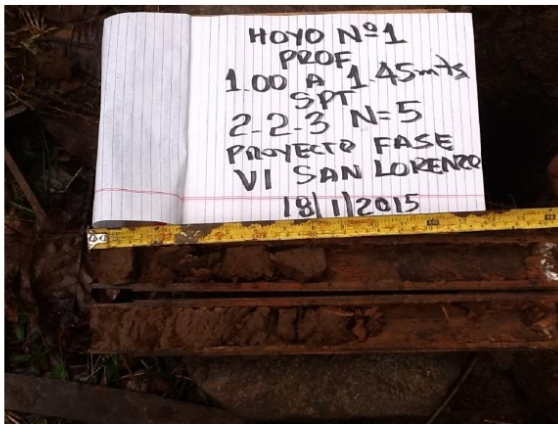 HOYO Nº1
PROF
1.00 A 1.45mts
SPT
2-2-3 N=5
PROYECTO FASE
VI SAN LORENZO
18/1/2015